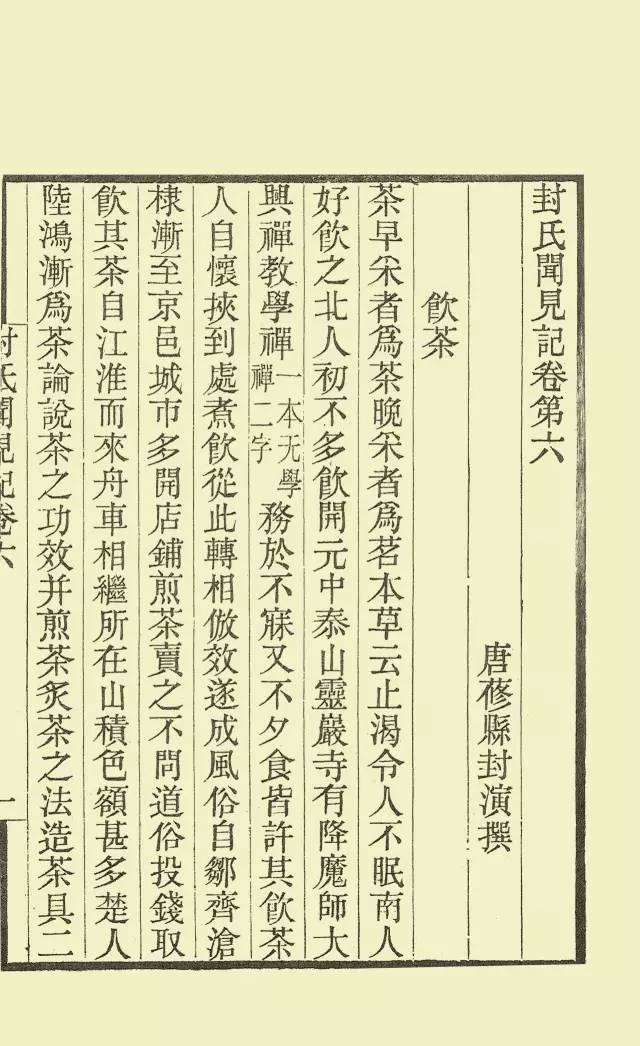 封氏聞見記卷第六
唐蓚縣封演撰
飲茶
茶早采者爲茶晚采者爲茗本草云止渴令人不眠南人
好飲之北人初不多飲開元中泰山靈巖寺有降魔師大
興禪教學禪一本无學禪二字務於不寐又不夕食皆許其飲茶
人自懷挾到處煮飲從此轉相倣效遂成風俗自鄒齊滄
棣漸至京邑城市多開店鋪煎茶賣之不問道俗投錢取
飲其茶自江淮而來舟車相繼所在山積色額甚多楚人
陸鴻漸爲茶論說茶之功效并煎茶炙茶之法造茶具二
封氏聞見記卷六
一